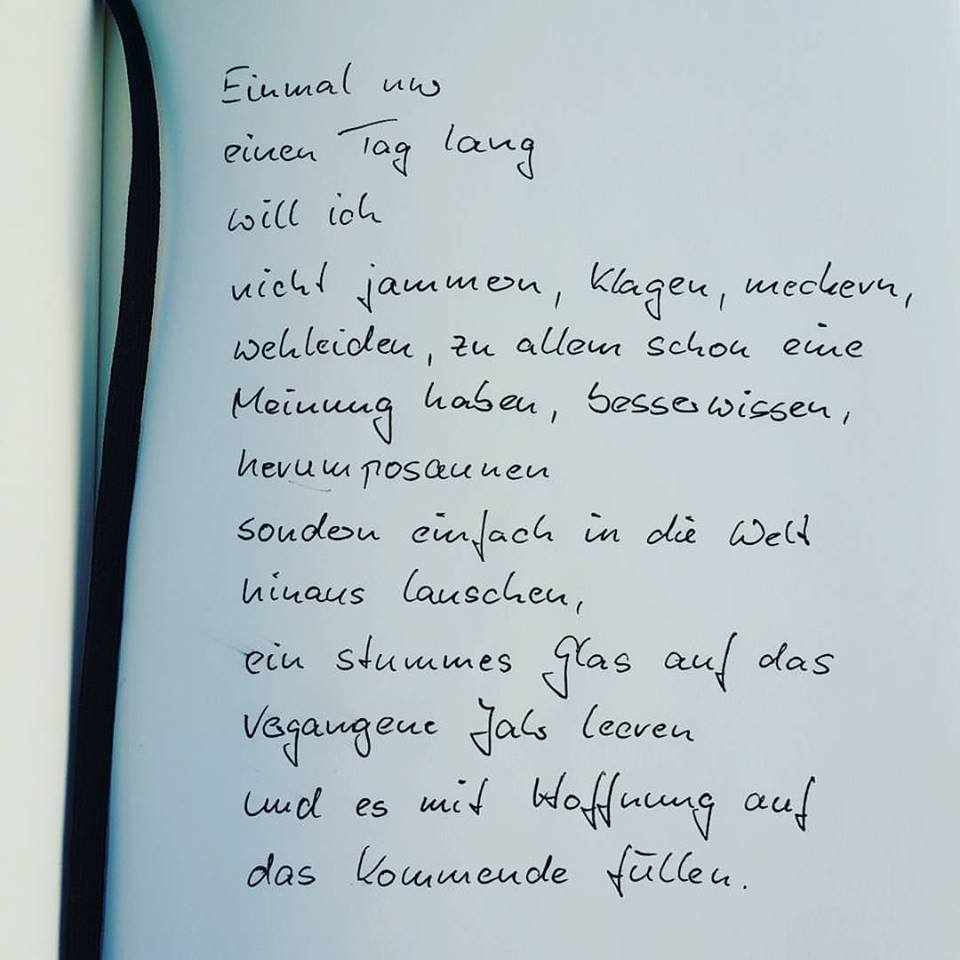 Einmal nur
einen Tag lang
will ich
nicht jammern, klagen, meckern,
wehleiden, zu allem schon eine
Meinung haben, besserwissen,
herumposaunen
sondern einfach in die Welt
hinaus lauschen,
ein stummes Glas auf das
Vergangene Jahr leeren
und es mit Hoffnung auf
das Kommende füllen.